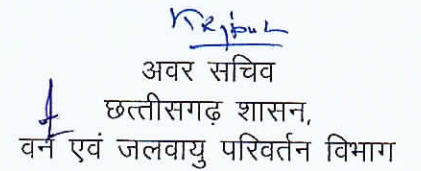 अवर सचिव
छत्तीसगढ़ शासन,
वन एवं जलवायु परिवर्तन विभाग